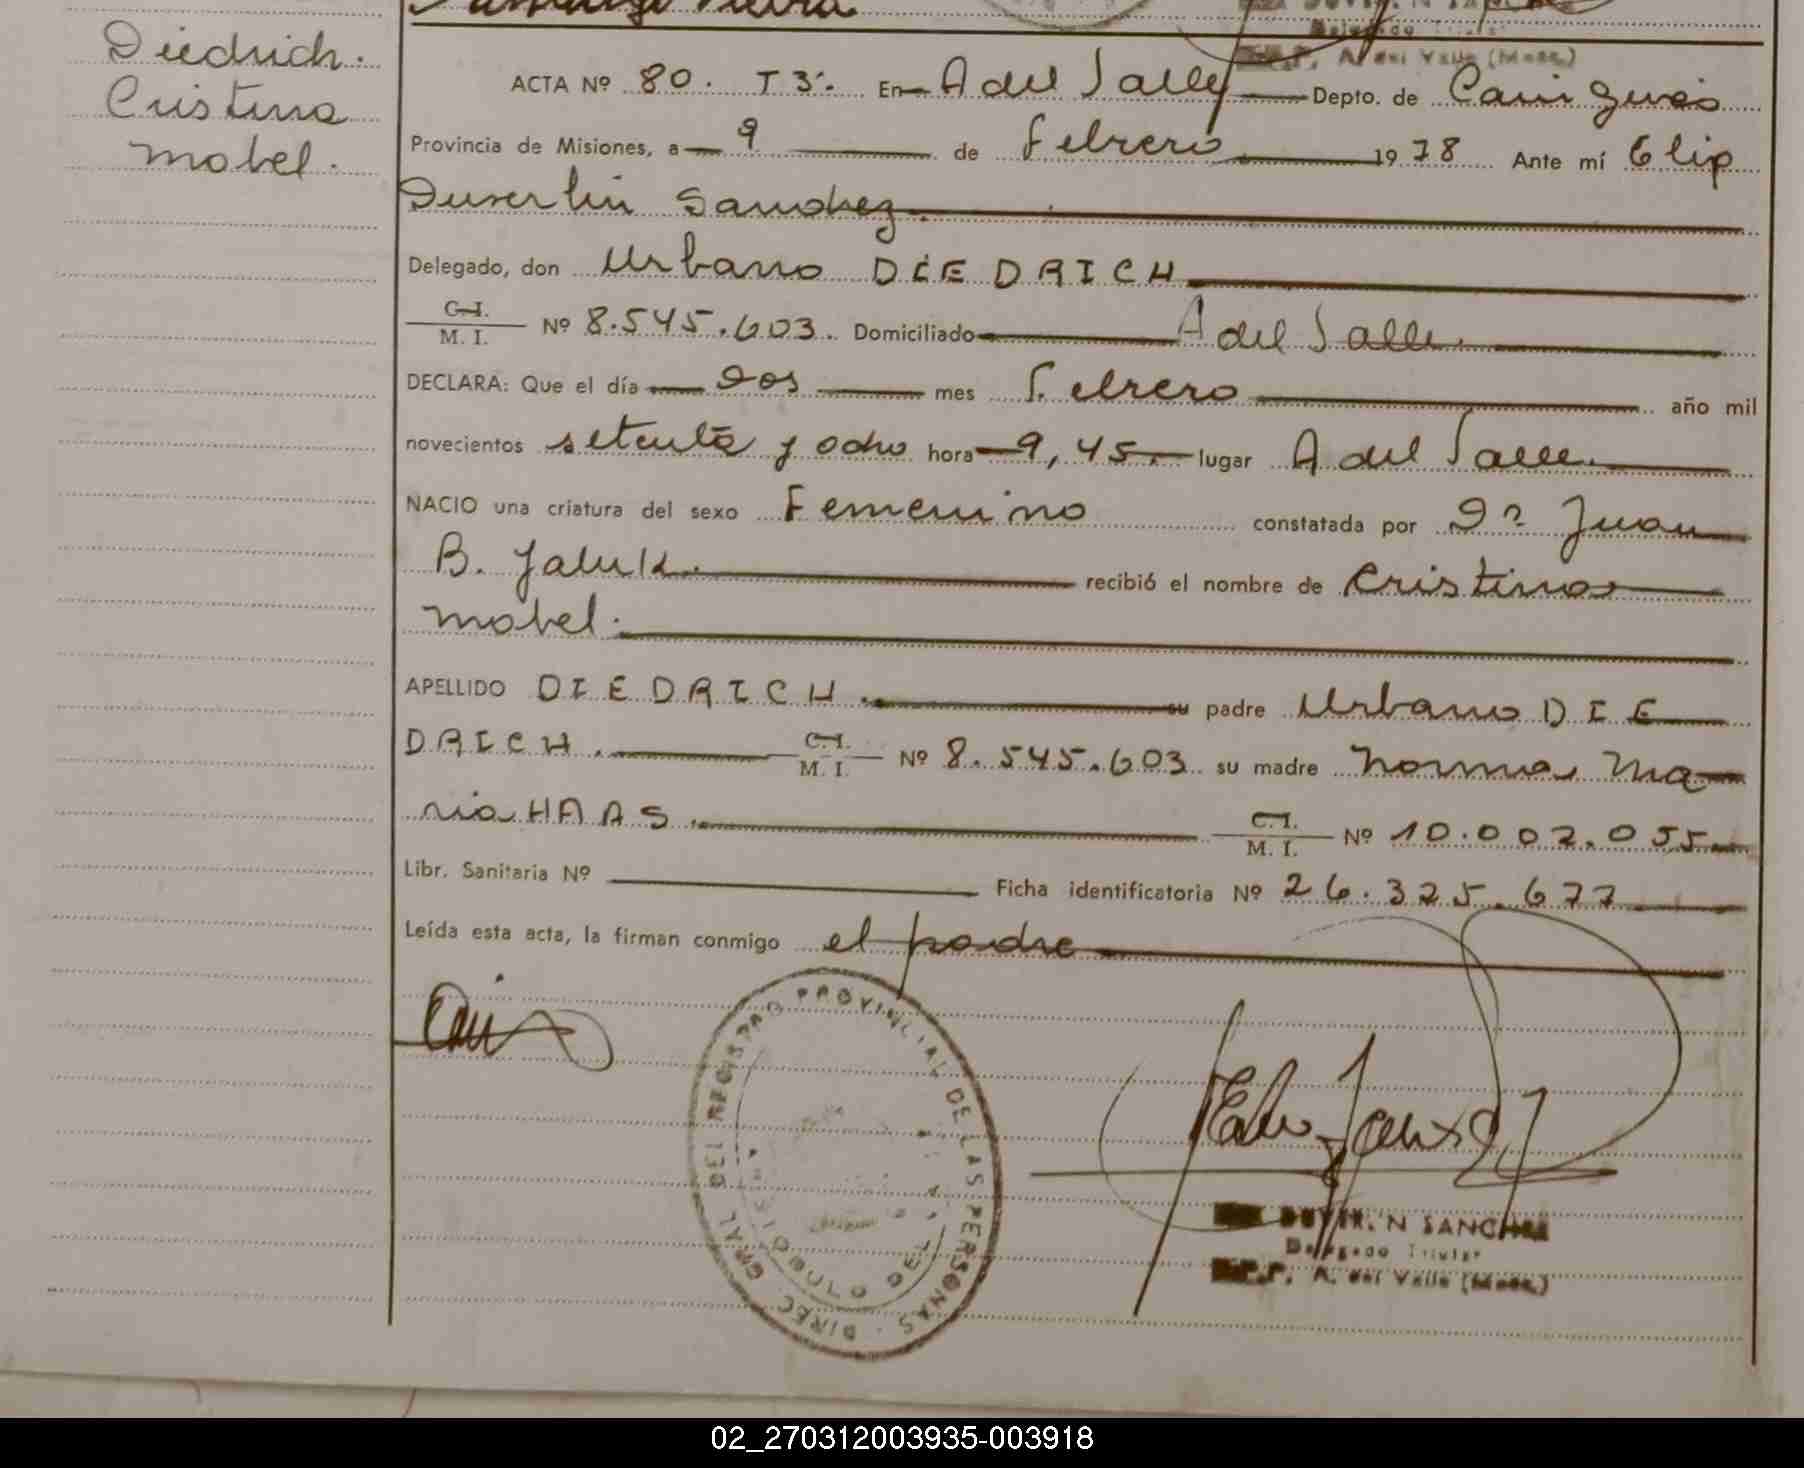 Delegado Titular
A. del Valle (Mnes.)
Diedrich.
Cristina
Mabel.
ACTA Nº 80. T3: En A del Valle Depto. de Cainguás
Provincia de Misiones, a 9 de Febrero 1978 Ante mí Elip
Duverlin Sanchez.
Delegado, don Urbano DIEDRICH
C.I.
M. I. Nº 8.545.603. Domiciliado A del Valle.
DECLARA: Que el día Dos mes Febrero año mil
novecientos setenta y ocho hora 9,45. lugar A del Valle.
NACIO una criatura del sexo Femenino constatada por Dº Juan
B. recibió el nombre de Cristina
Mabel.
APELLIDO DIEDRICH. su padre Urbano DIE
DRICH. C.I. M. I. Nº 8.545.603 su madre Norma Ma
ria HAAS. C.I. M. I. Nº 10.002.055.
Libr. Sanitaria Nº Ficha identificatoria Nº 26.325.677
Leída esta acta, la firman conmigo el padre
DIREC. GRAL. DEL REGISTRO PROVINCIAL DE LAS PERSONAS
N SANCHEZ
Delegado Titular
A. del Valle (Mnes.)
02_270312003935-003918